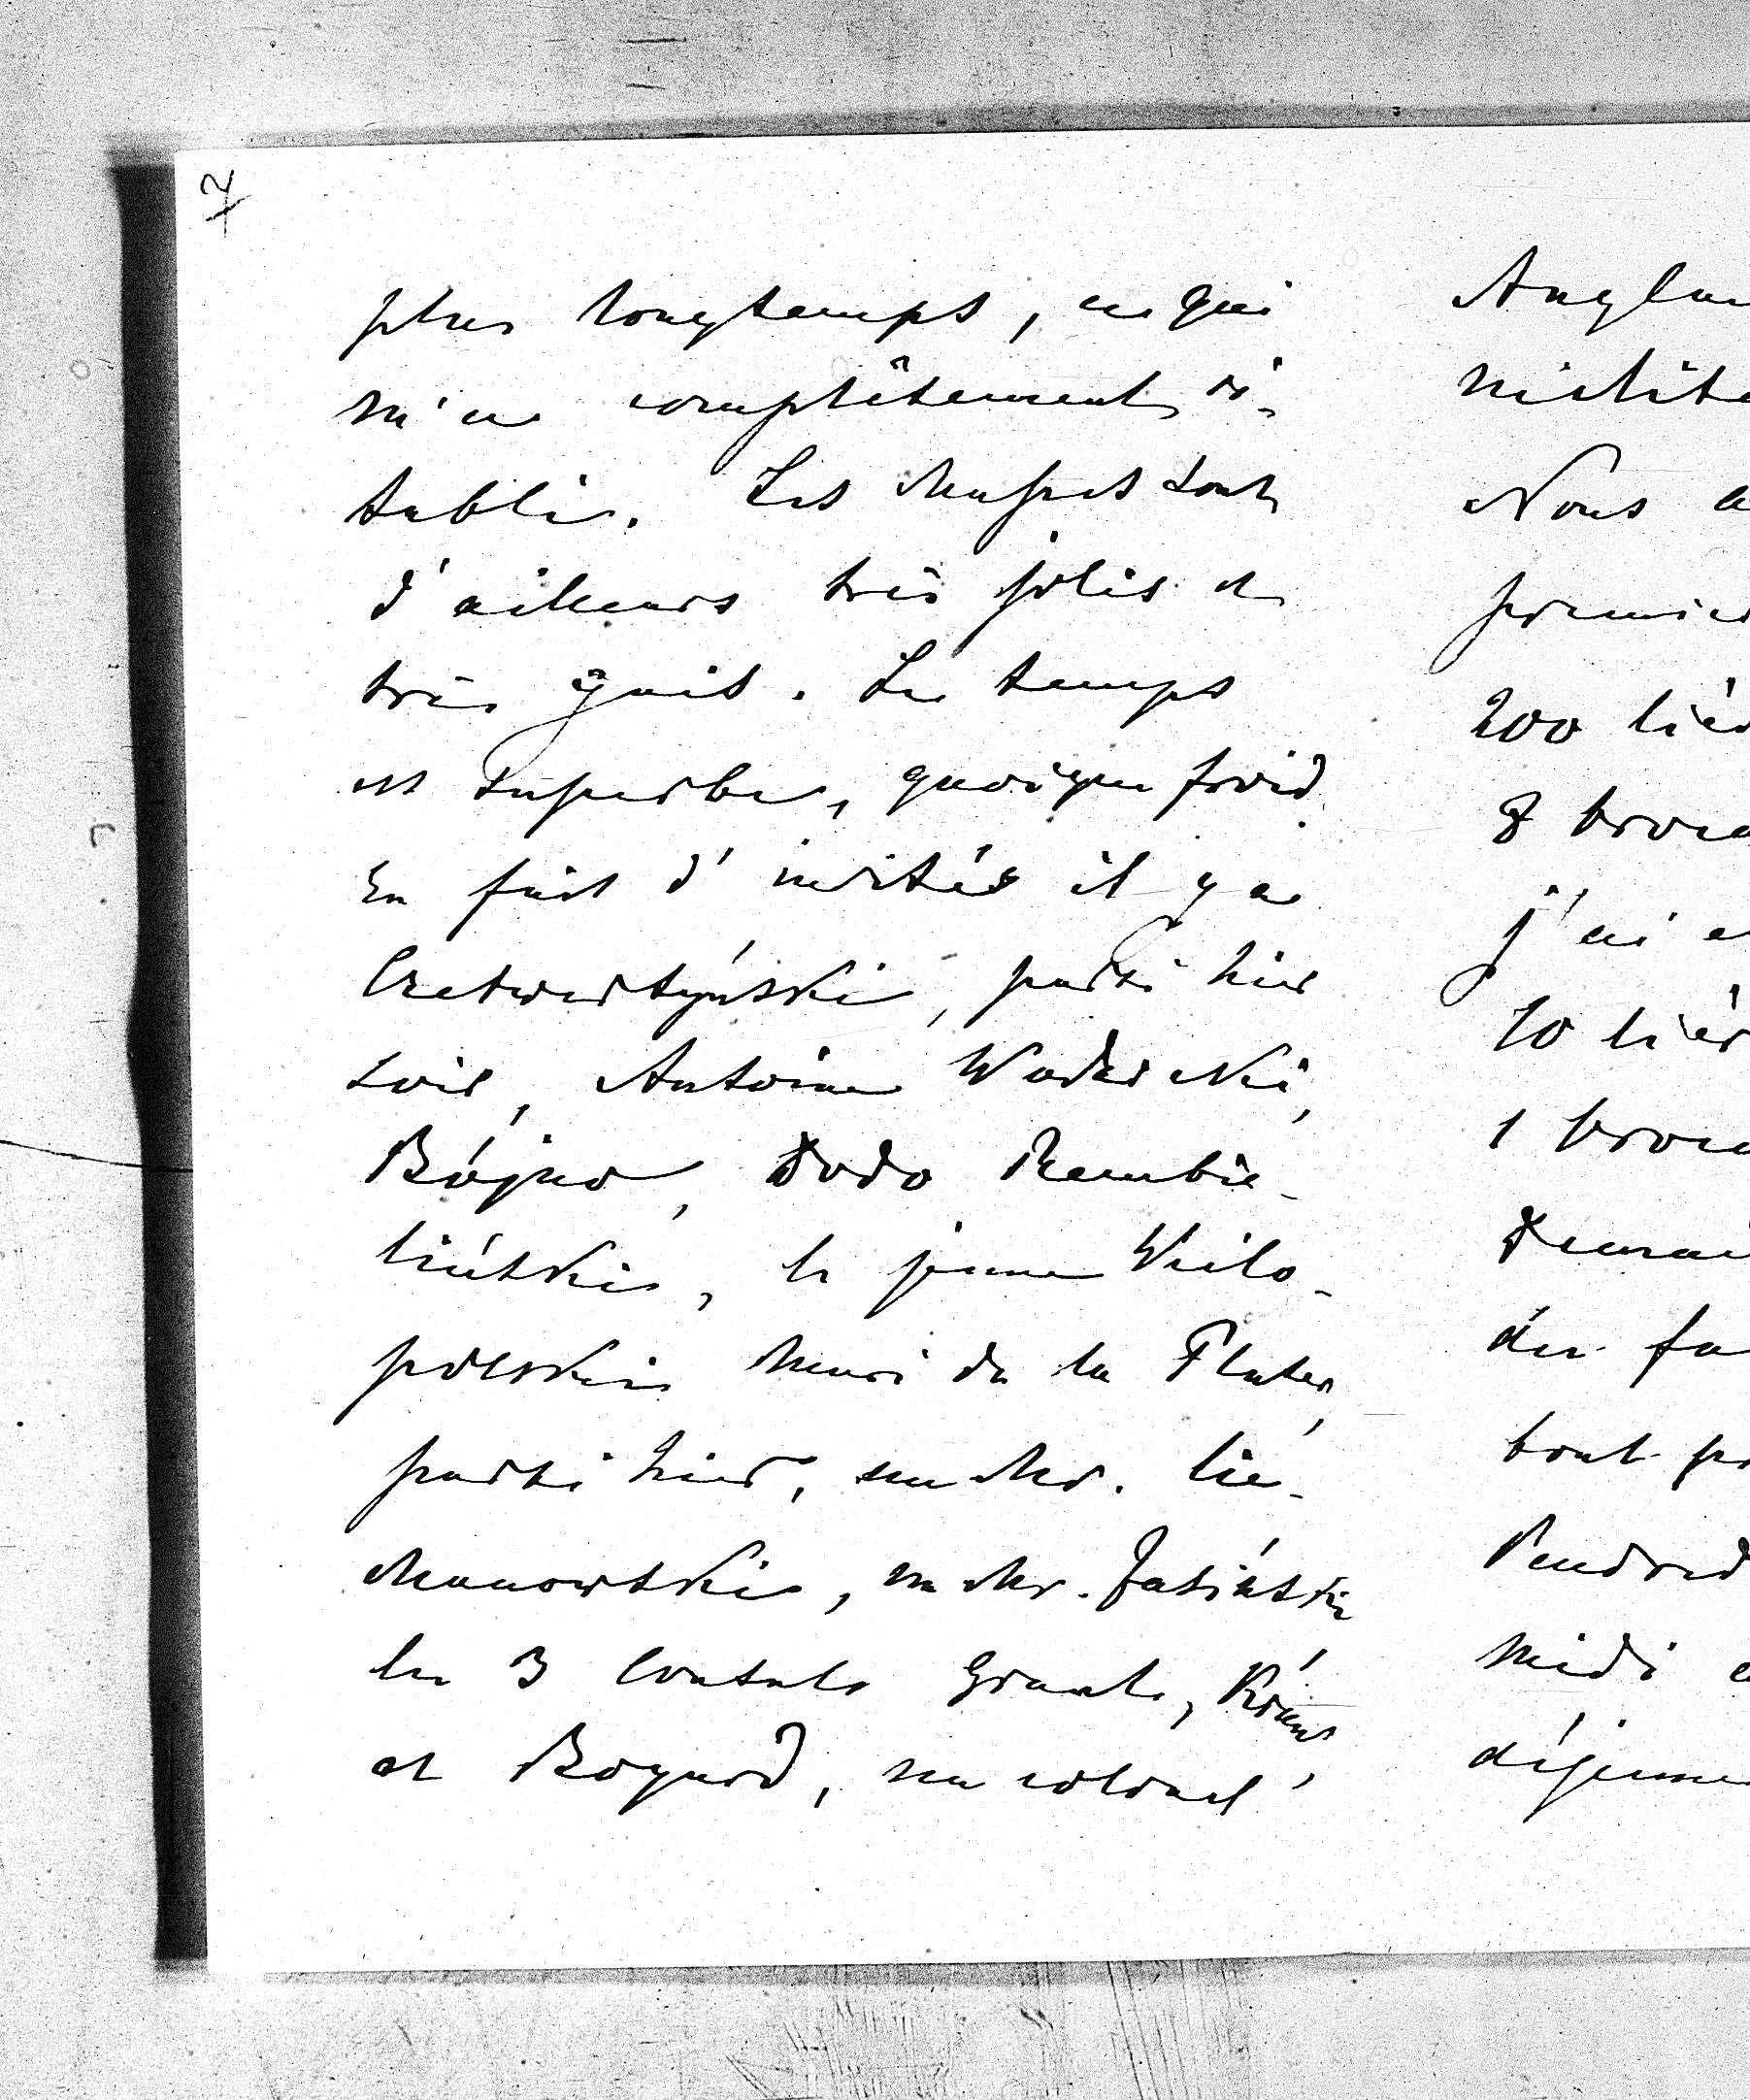 2
plus longtemps, ce qui
m'a complètement ré-
tabli. Les chasses sont
d'ailleurs très jolis et
très gais. Le temps
est superbe, quoique froid.
En fait d'invités il y a
Czetwertyński, parti hier
soir, Antoine Wodzicki,
Bójno, Dodo Rembie-
liński, le jeune Wielo-
polski mari de la Plater,
parti hier, un Mr. Cie-
chanowski, un Mr. Jasiński
les 3 Consuls Grant,
et Bogard, un colonel
Anglai
milita
Nous a
premier
200 lièv
8 broca
j'ai e
10 lièv
1 broca
Demai
der fa
tout pr
Pendred
midi e
déjeune